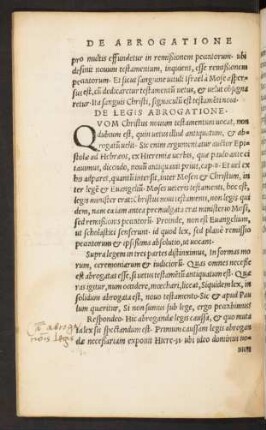 DE ABROGATIONE
pro multis effunditur in remissionem peccatorum. ubi
definit nouum testamentum, inquiens, esse remissionem
peccatorum. Et sicut sanguine uituli israel à Mose asper-
sus est, cũ dedicaretur testamentũ uetus, & uelut obsigna
retur. Ita sanguis Christi, signaculũ est testamẽti noui.
DE LEGIS ABROGATIONE.
QVOM Christus nouum testamentum uocat, non
dubium est, quin uetus illud antiquatum, & ab-
rogatũ uelit. Sic enim argumentatur auctor Epi
stolæ ad Hebræos, ex Hieremiæ uerbis, quæ paulo ante ci
tauimus, dicendo, nouũ antiquauit prius, cap. 8. Et uel ex
hoc adparet, quantũ intersit, inter Mosen & Christum, in
ter legẽ & Euangeliũ. Moses ueteris testamenti, hoc est,
legis minister erat: Christus noui testamenti, non legis qui
dem, nam ea iam antea promulgata erat ministerio Mosi,
sed remissionis peccatorũ. Proinde, non est Euangelium,
ut scholastici senserunt. id quod lex, sed planè remissio
peccatorum & ipsissima absolutio, ut uocant.
Supra legem in tres partes distinximus, in formam mo
rum, ceremoniarum & iudiciorũ. Quas omneis necesse
est abrogatas esse, si uetus testamẽtũ antiquatum est. Quæ
ras igitur, num occidere, mœchari, liceat, Siquidem lex, in
solidum abrogata est, nouo testamento. Sic & apud Pau
lum quæritur, Si non sumus sub lege, ergo peccabimus?
Respondeo. Hic abrogandæ legis caussa, & quo muta
ta lex sit spectandum est. Primum caussam legis abrogan
dæ necessariam exponit Hiere. 31. ubi ideo donabitur no
abroga
Legis